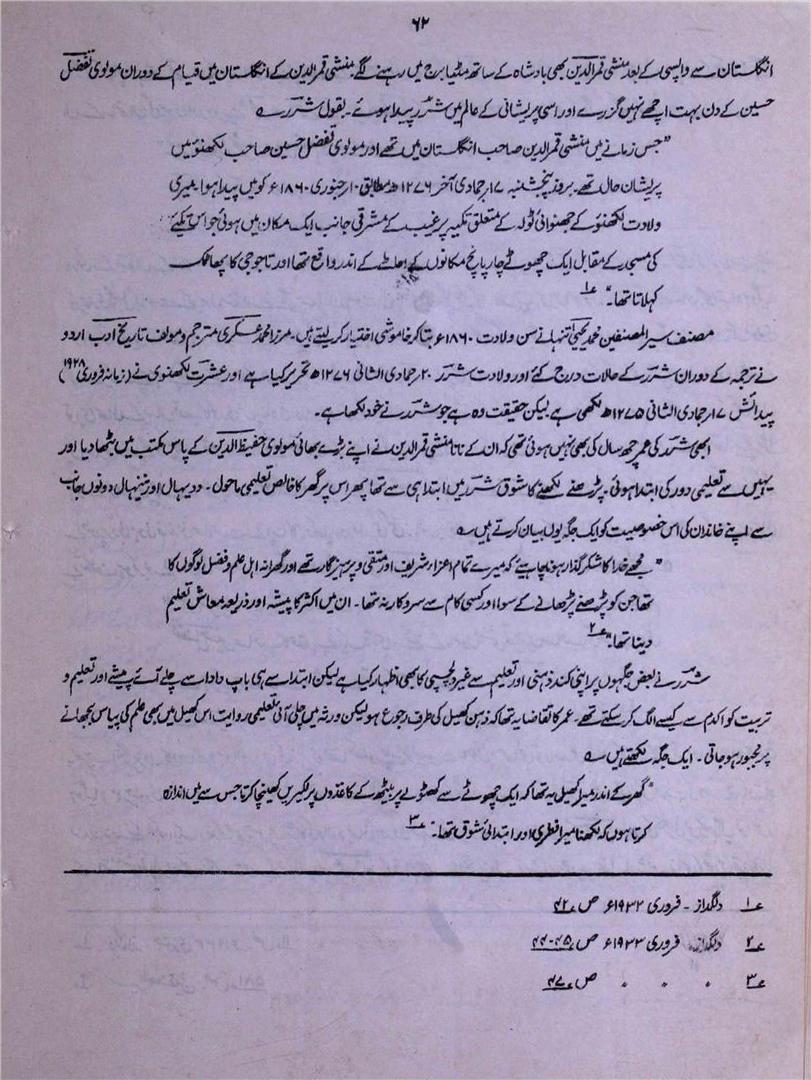 ۶۲
انگلستان سے واپسی کے بعد منشی قمرالدین بھی بادشاہ کے ساتھ مٹیا برج میں رہنے لگے۔ منشی قمرالدین کے انگلستان میں قیام کے دوران مولوی تفضل
حسین کے دن بہت اچھے نہیں گزرے اور اسی پریشانی کے عالم میں شررؔ پیدا ہوئے۔ بقول شررؔ ؎
"جس زمانے میں منشی قمرالدین صاحب انگلستان میں تھے اور مولوی تفضل حسین صاحب لکھنؤ میں
پریشان حال تھے۔ بروز پنجشنبہ ۱۷؍ جمادی آخر ۱۲۷۶ھ مطابق ۱۰؍ جنوری ۱۸۶۰ء کو میں پیدا ہوا، میری
ولادت لکھنؤ کے جھنوائی ٹولہ کے متعلق تکیہ پر غیب کے مشرقی جانب ایک مکان میں ہوئی جو اس تکیئے
کی مسجد کے مقابل ایک چھوٹے چار پانچ مکانوں کے احاطے کے اندر واقع تھا اور تاجوجی کا پھاٹک
کہلاتا تھا۔" ؏۱
مصنف سیر المصنفین محمد یحییٰ تنہا نے سن ولادت ۱۸۶۰ء بتا کر خاموشی اختیار کر لیتے ہیں۔ مرزا محمد عسکری مترجم و مولف تاریخ ادب اردو
نے ترجمہ کے دوران شررؔ کے حالات درج کئے اور ولادت شررؔ ۲۰؍ جمادی الثانی ۱۲۷۶ھ تحریر کیا ہے اور عشرتؔ لکھنوی نے (زمانہ فروری ۱۹۲۸)
پیدائش ۱۷؍ جمادی الثانی ۱۲۷۵ھ لکھی ہے لیکن حقیقت وہ ہے جو شررؔ نے خود لکھا ہے۔
ابھی شررؔ کی عمر چھ سال کی بھی نہیں ہوئی تھی کہ ان کے نانا منشی قمرالدین نے اپنے بڑے بھائی مولوی حفیظ الدین کے پاس مکتب میں بٹھا دیا اور
یہیں سے تعلیمی دور کی ابتدا ہوئی۔ پڑھنے لکھنے کا شوق شررؔ میں ابتدا ہی سے تھا پھر اس پر گھر کا خالص تعلیمی ماحول۔ ددیہال اور ننیہال دونوں جانب
سے اپنے خاندان کی اس خصوصیت کو ایک جگہ یوں بیان کرتے ہیں ؎
"مجھے خدا کا شکر گذار ہونا چاہیئے کہ میرے تمام اعزا، شریف اور متقی و پرہیزگار تھے اور گھرانہ اہل علم و فضل لوگوں کا
تھا جن کو پڑھنے پڑھانے کے سوا اور کسی کام سے سروکار نہ تھا۔ ان میں اکثر کا پیشہ اور ذریعہ معاش تعلیم
دینا تھا۔" ؏۲
شررؔ نے بعض جگہوں پر اپنی کند ذہنی اور تعلیم سے غیر دلچسپی کا بھی اظہار کیا ہے لیکن ابتدا سے ہی باپ دادا سے چلے آئے پیشے اور تعلیم و
تربیت کو اکدم سے کیسے الگ کر سکتے تھے۔ عمر کا تقاضا یہ تھا کہ ذہن کھیل کی طرف رجوع ہو لیکن ورثہ میں چلی آئی تعلیمی روایت اس کھیل میں بھی علم کی پیاس بجھانے
پر مجبور ہو جاتی۔ ایک جگہ لکھتے ہیں ؎
"گھر کے اندر میرا کھیل یہ تھا کہ ایک چھوٹے سے کھٹولے پر بیٹھ کے کاغذوں پر لکیریں کھینچا کرتا جس سے میں اندازہ
کرتا ہوں کہ لکھنا میرا فطری اور ابتدائی شوق تھا۔" ؏۳
؏۱ دلگداز۔ فروری ۱۹۳۲ء ص ۴۲
؏۲ دلگداز، فروری ۱۹۳۳ء ص ۴۵-۴۴
؏۳ " " " ص ۴۷